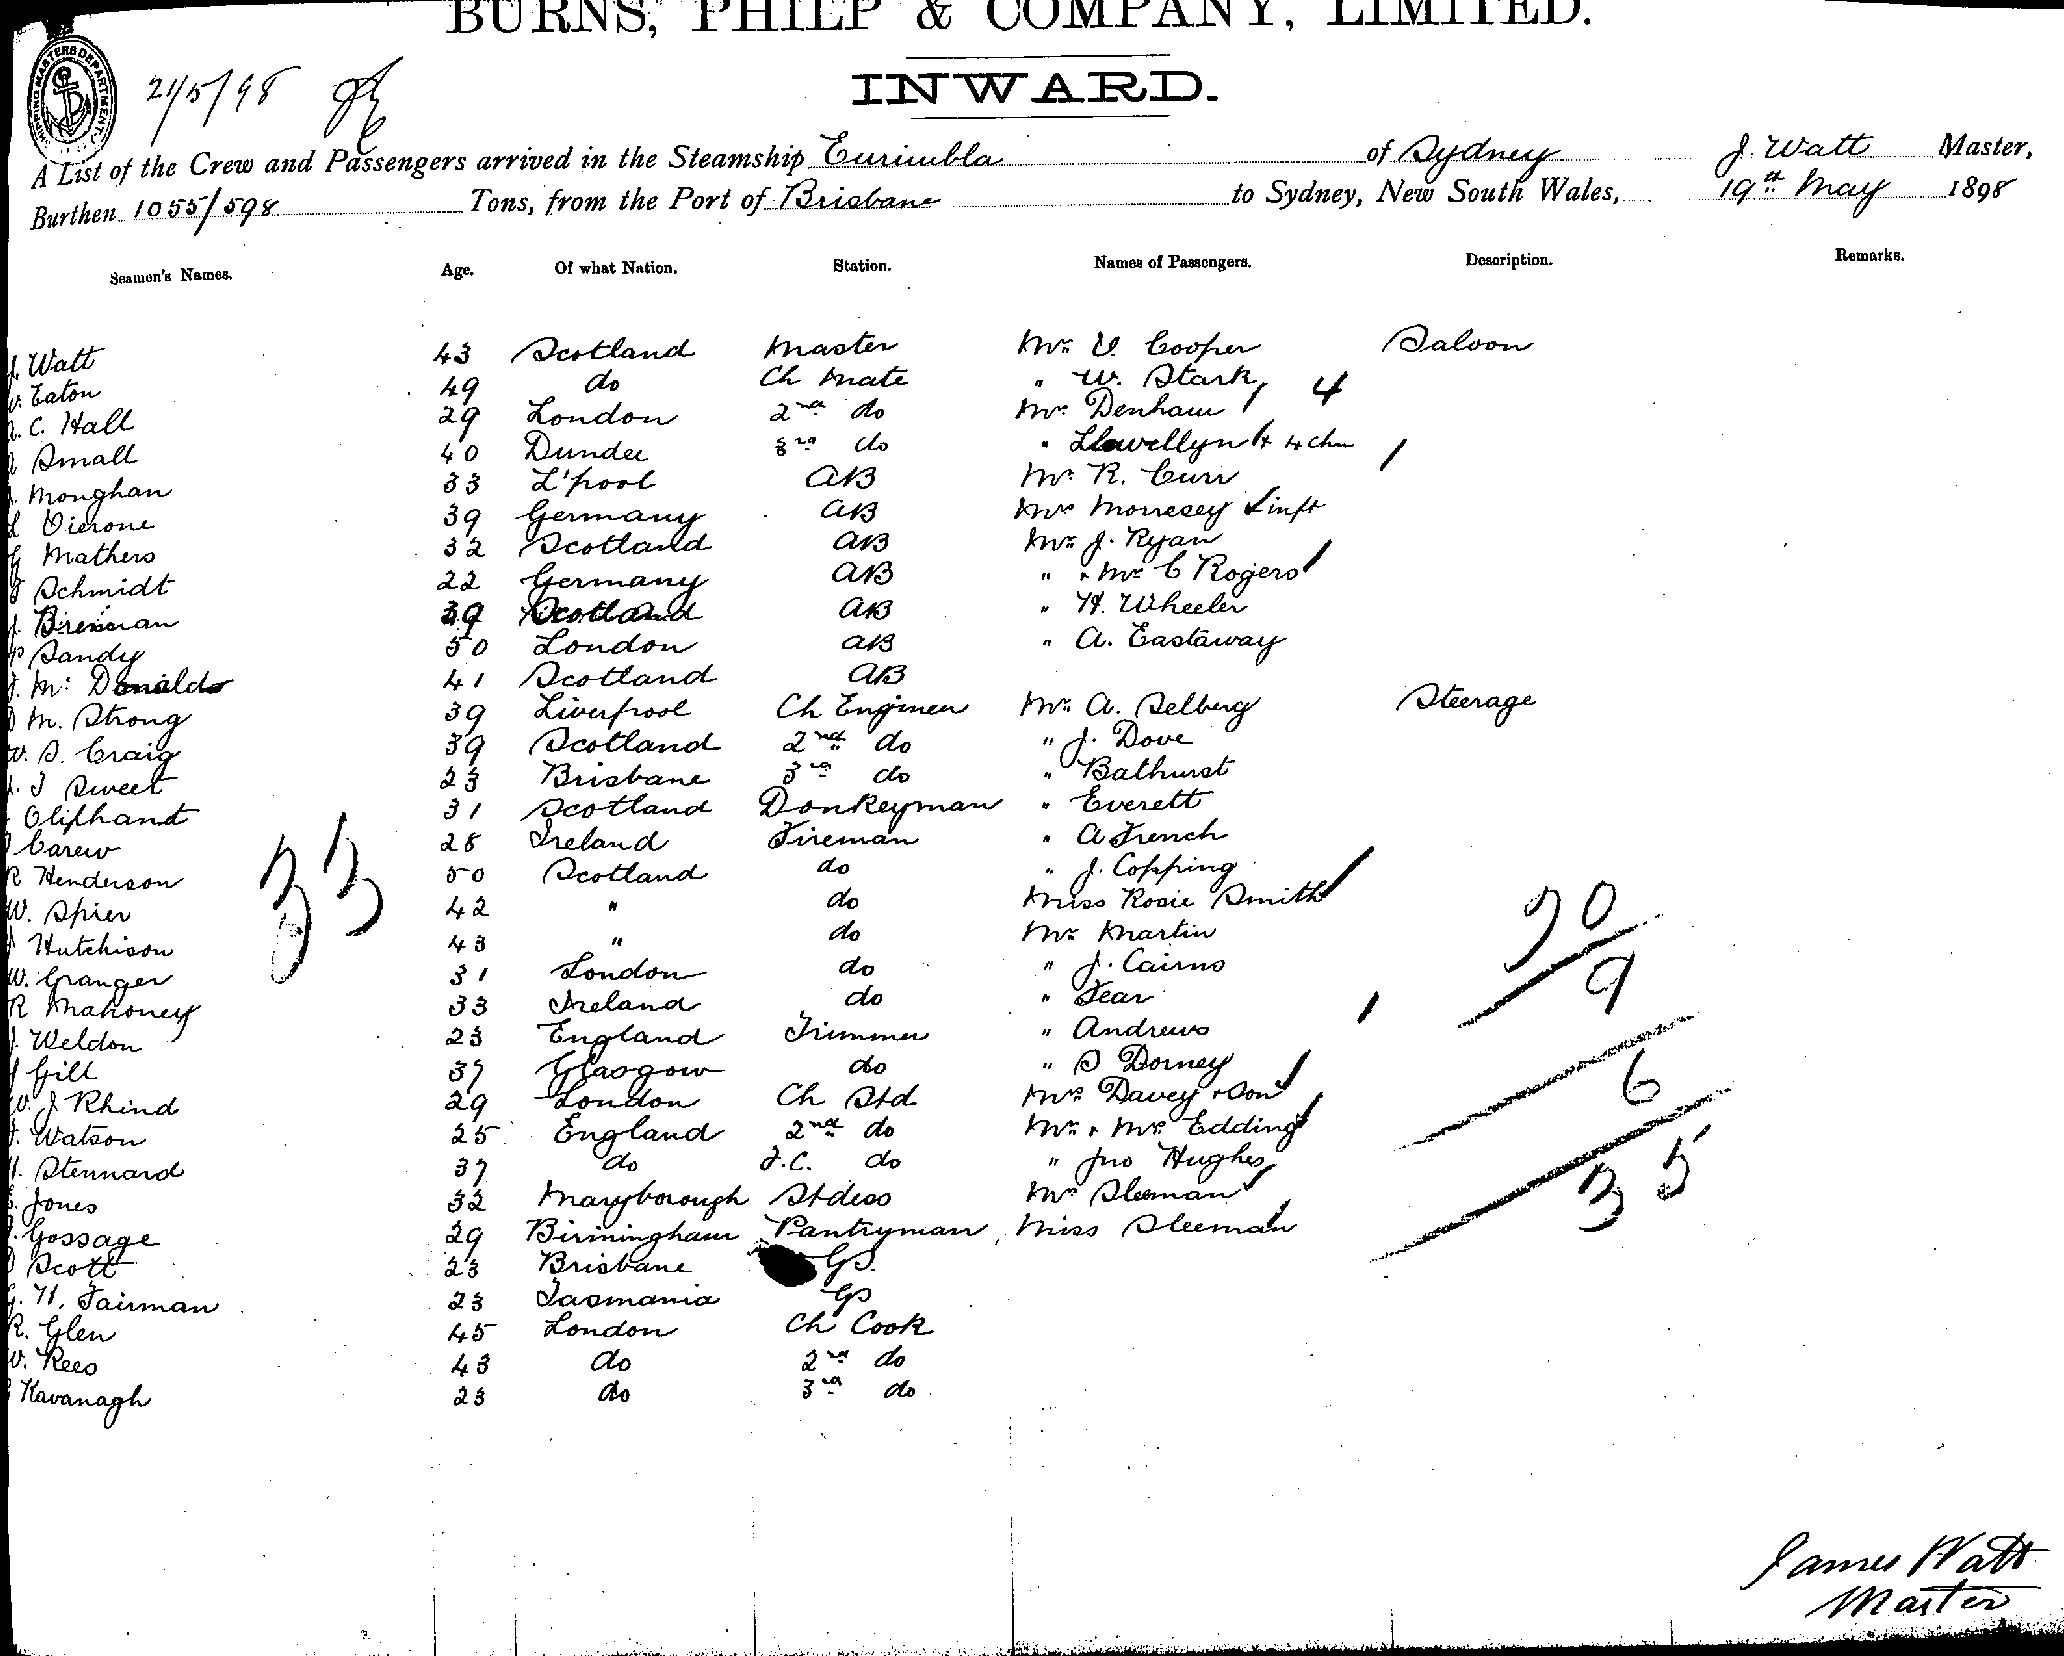 BURNS, PHILP & COMPANY, LIMITED.
INWARD.
21/5/98
A List of the Crew and Passengers arrived in the Steamship Eurimbla of Sydney J. Watt Master,
Burthen 1055/598 Tons, from the Port of Brisbane to Sydney, New South Wales, 19th May 1898
Seamen's Names. Age. Of what Nation. Station. Names of Passengers. Description. Remarks.
J. Watt 43 Scotland Master Mr. V. Cooper Saloon
Eaton 49 do Ch Mate " W. Stark 4
C. Hall 29 London 2nd do Mrs Denham
Small 40 Dundee 3rd do " Llewellyn & 4 chn
Monghan 33 L'pool AB Mr. R. Curr
Vierone 39 Germany AB Mrs Morresey & inft
Mathers 32 Scotland AB Mr. J. Ryan
Schmidt 22 Germany AB " & Mrs C Rogers
Brennan 39 Scotland AB " H. Wheeler
Sandy 50 London AB " A. Eastaway
Mc Donald 41 Scotland AB
M. Strong 39 Liverpool Ch Engineer Mr. A. Selberg Steerage
W. S. Craig 39 Scotland 2nd do " J. Dove
Sweet 23 Brisbane 3rd do " Bathurst
Oliphant 31 Scotland Donkeyman " Everett
Carew 28 Ireland Fireman " A French
R Henderson 50 Scotland do " J. Copping
W. Spier 42 " do Miss Rosie Smith
Hutchison 43 " do Mr. Martin
W. Granger 31 London do " J. Cairns
R Mahoney 33 Ireland do " Fear
Weldon 23 England Trimmer " Andrews
Gill 37 Glasgow do " S Dorney
J Rhind 29 London Ch Std Mrs Davey & Son
Watson 25 England 2nd do Mr. & Mrs Edding
Stennard 37 do F.C. do " Jno Hughes
Jones 32 Maryborough Stdess Mrs Sleeman
Gossage 29 Birmingham Pantryman Miss Sleeman
Scott 23 Brisbane GS.
G. H. Fairman 23 Tasmania GS
R. Glen 45 London Ch Cook
Rees 43 do 2nd do
Kavanagh 23 do 3rd do
33
20
9
6
35
James Watt
Master